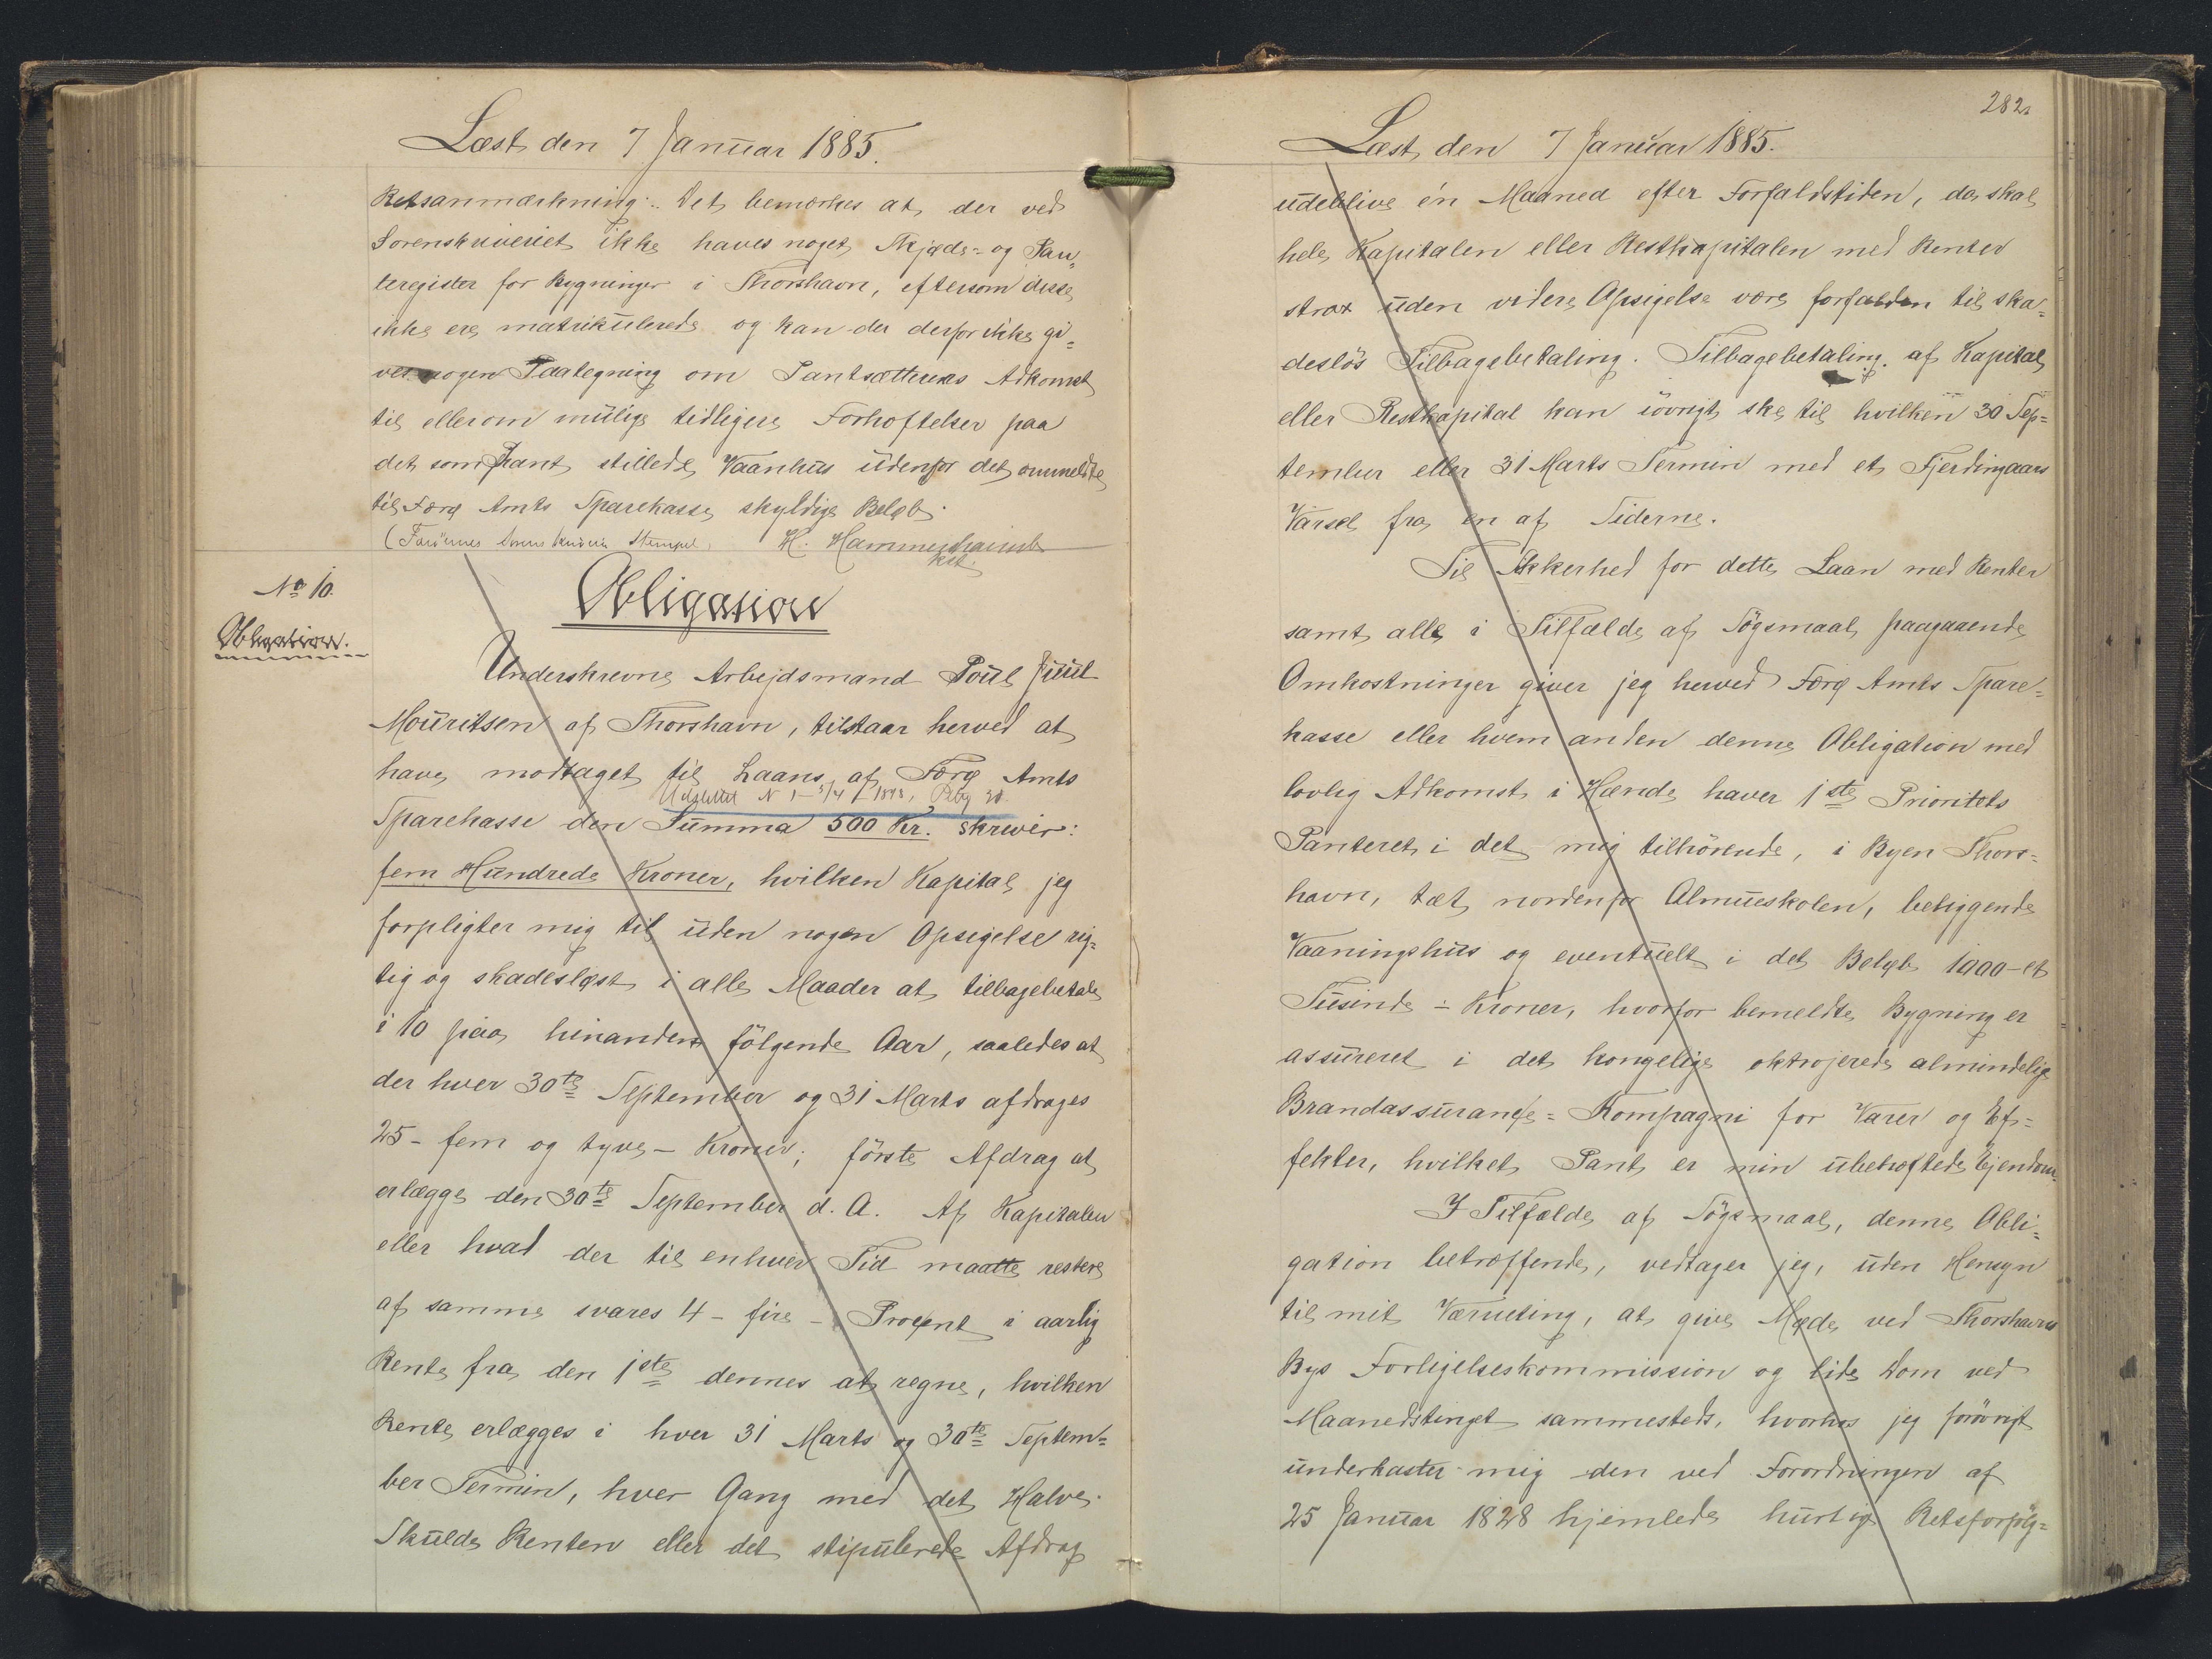 Læst den 7 Januar 1885.
Retsanmærkning: Det bemærkes at der ved
Sorenskriveriet ikke haves noget Skjøde- og Pan„
teregister for Bygninger i Thorshavn, eftersom disse
ikke ere matrikulerede og kan der derfor ikke gi=
ves nogen Paategning om Pantsætterens Adkomst
til eller om mulige tidligere Forhæftelser paa
det som Pant stillede Vaanhus udenfor det ommeldte
til Færø Amts Sparekasse skyldige Beløb.
(Færøernes Sorenskriveri Stempel. H. Hammershaimb
kst.
No 10.
Obligation.
Obligation
Underskrevne Arbejdsmand Poul Juul
Mouritsen af Thorshavn, tilstaar herved at
have modtaget til Laans af Færø Amts
Udslettet N 1 - 3/4 - 1898,
Sparekasse den Summa 500 Kr. skriver:
fem Hundrede Kroner, hvilken Kapital jeg
forpligter mig til uden nogen Opsigelse rig=
tig og skadesløst i alle Maader at tilbagebetale
i 10 paa hinanden følgende Aar, saaledes at
der hver 30te September og 31 Marts afdrages
25 - fem og tyve - Kroner; første Afdrag at
erlægge den 30te September d. A. Af Kapitalen
eller hvad der til enhver Tid maatte restere
af samme svares 4 - fire - Procent i aarlig
Rente fra den 1ste dennes at regne, hvilken
Rente erlægges i hver 31 Marts og 30te Septem=
ber Termin, hver Gang med det Halve.
Skulde Renten eller det stipulerede Afdrag
282.
Læst den 7 Januar 1885.
udeblive én Maaned efter Forfaldstiden, da skal
hele Kapitalen eller Restkapitalen med Renter
strax uden videre Opsigelse være forfalden til ska=
desløs Tilbagebetaling. Tilbagebetaling af Kapital
eller Restkapital kan iøvrigt ske til hvilken 30 Sep=
tember eller 31 Marts Termin med et Fjerdingaars
Varsel fra en af Siderne.
Til Sikkerhed for dette Laan med Renter
samt alle i Tilfælde af Søgsmaal paagaaende
Omkostninger giver jeg herved Færø Amts Spare=
kasse eller hvem anden denne Obligation med
lovlig Adkomst i Hænde haver 1ste Prioritets
Panteret i det mig tilhørende, i Byen Thors=
havn, tæt nordenfor Almueskolen, beliggende
Vaaningshus og eventuelt i det Beløb 1000 - et
Tusinde - Kroner, hvorfor bemeldte Bygning er
assureret i det kongelige oktrojerede almindelige
Brandassurance=Kompagni for Varer og Ef=
fekter, hvilket Pant er min ubehæftede Ejendom.
I Tilfælde af Søgsmaal, denne Obli=
gation betræffende, vedtager jeg, uden Hensyn
til mit Værneting, at give Møde ved Thorshavns
Bys Forligelseskommission og lide Dom ved
Maanedstinget sammesteds, hvorhos jeg forøvrigt
underkaster mig den ved Forordningen af
25 Januar 1828 hjemlede hurtige Retsforfølg=